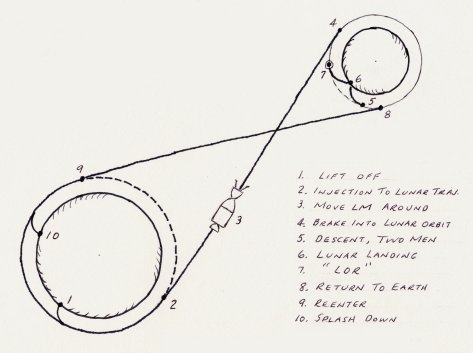 4
7
6
5
8
9
3
10
1
2
1. LIFT OFF
2. INJECTION TO LUNAR TRAJ.
3. MOVE LM AROUND
4. BRAKE INTO LUNAR ORBIT
5. DESCENT, TWO MEN
6. LUNAR LANDING
7. "LOR"
8. RETURN TO EARTH
9. REENTER
10. SPLASH DOWN